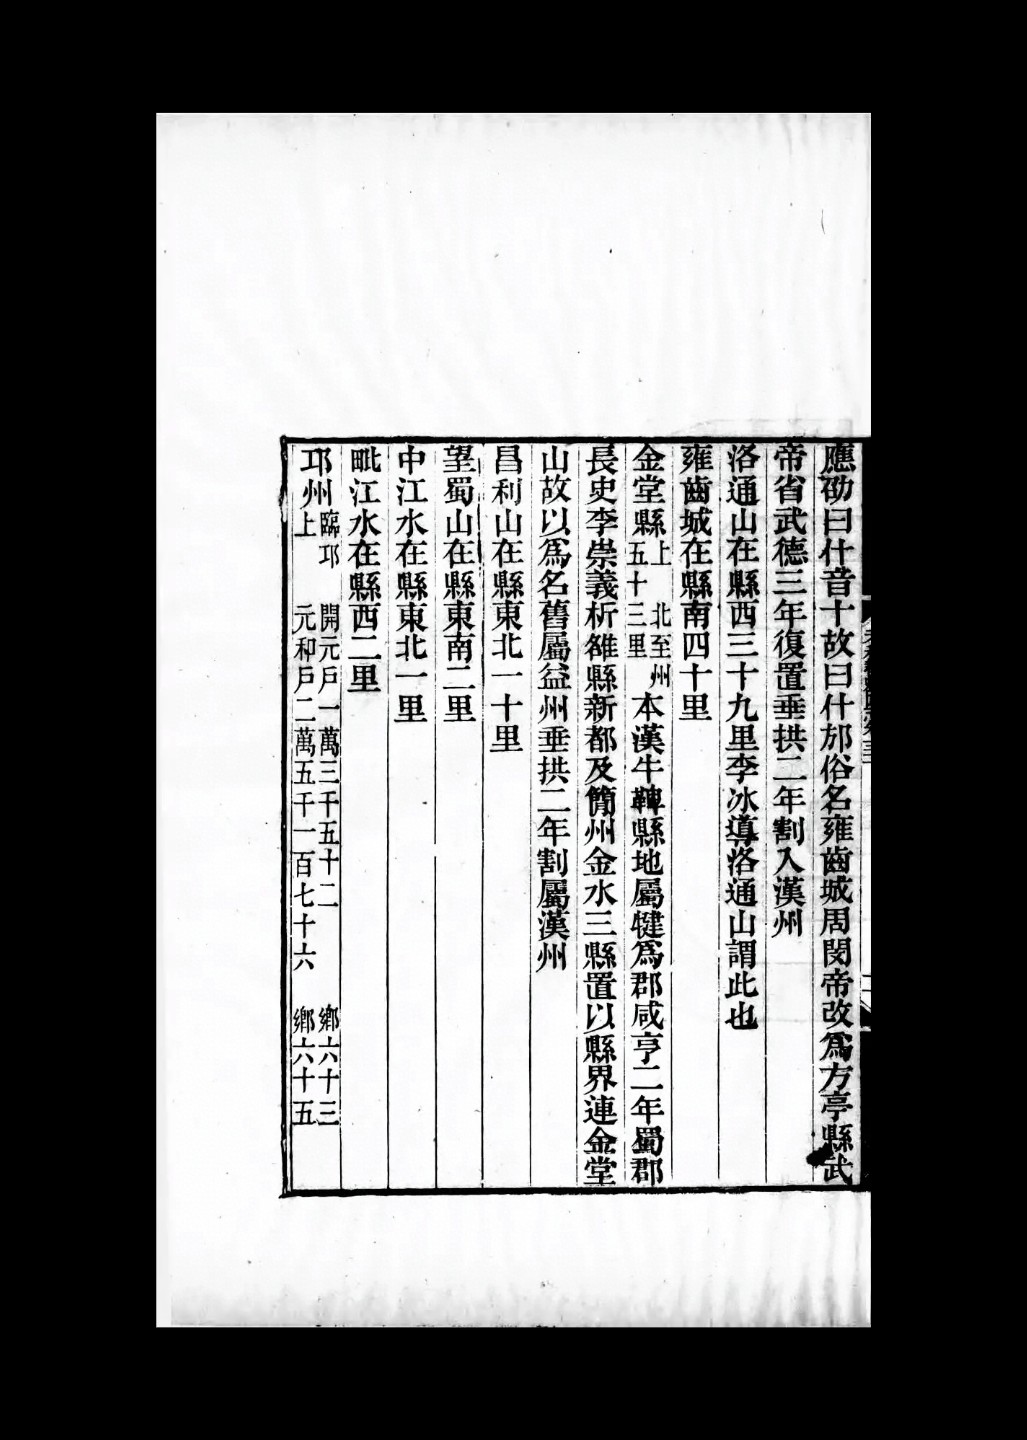 應劭曰什音十故曰什邡俗名雍齒城周閔帝改爲方亭縣武
帝省武德三年復置垂拱二年割入漢州
洛通山在縣西三十九里李冰導洛通山謂此也
雍齒城在縣南四十里
金堂縣上 北至州五十三里本漢牛鞞縣地屬犍爲郡咸亨二年蜀郡
長史李崇義析雒縣新都及簡州金水三縣置以縣界連金堂
山故以爲名舊屬益州垂拱二年割屬漢州
昌利山在縣東北一十里
望蜀山在縣東南二里
中江水在縣東北一里
毗江水在縣西二里
邛州臨邛上 開元戶一萬三千五十二 鄉六十三
元和戶二萬五千一百七十六 鄉六十五